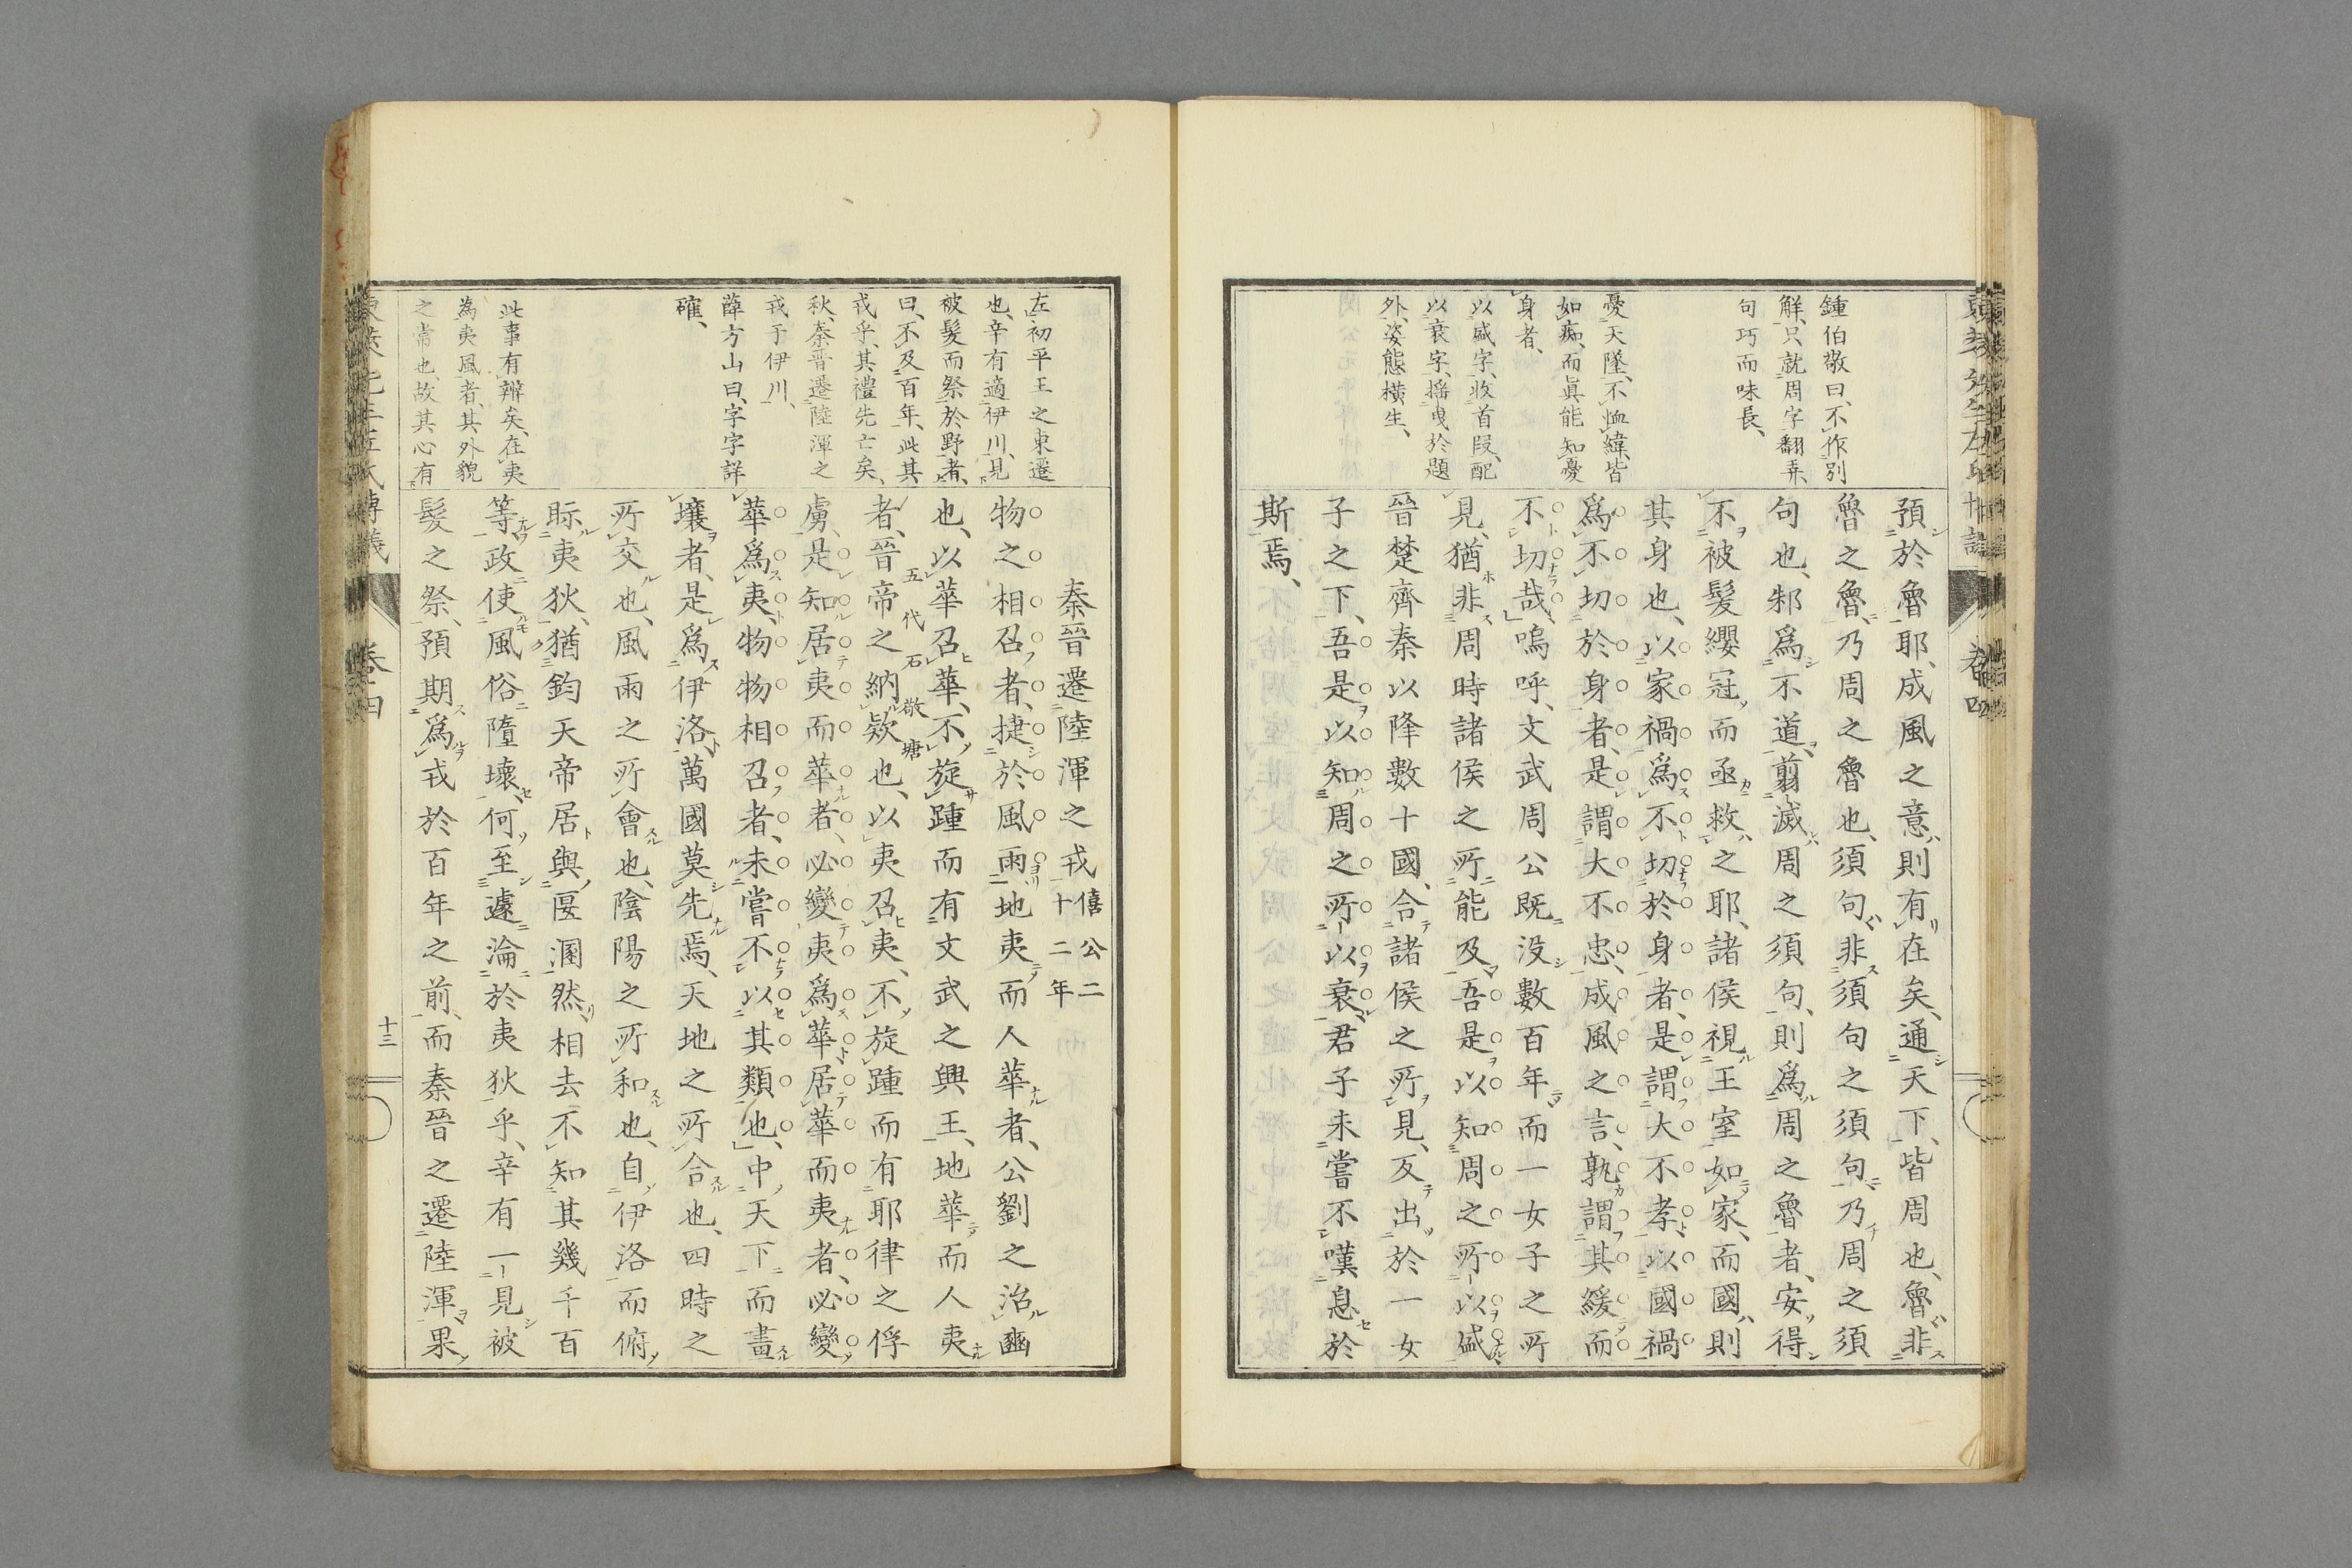 鍾伯敬曰、不作別
解、只就周字翻弄、
句巧而味長、
憂天墜、不恤緯、皆
如痴、而眞能知憂
身者、
以盛字、收首段、配
以衰字、搖曳於題
外、姿態橫生、
預於魯耶、成風之意、則有在矣、通天下、皆周也、魯非
魯之魯、乃周之魯也、須句、非須句之須句、乃周之須
句也、邾爲不道、翦滅周之須句、則爲周之魯者、安得
不被髮纓冠、而亟救之耶、諸侯視王室如家、而國、則
其身也、以家禍爲不切於身者、是謂大不孝、以國禍
爲不切於身者、是謂大不忠、成風之言、孰謂其緩而
不切哉、嗚呼、文武周公既没數百年、而一女子之所
見、猶非周時諸侯之所能及、吾是以知周之所以盛
晉楚齊秦以降數十國、合諸侯之所見、反出於一女
子之下、吾是以知周之所以衰、君子未嘗不嘆息於
斯焉、
卷四
左初平王之東遷
也、辛有適伊川、見
被髮而祭於野者、
曰、不及百年、此其
戎乎、其禮先亡矣、
秋、秦晉遷陸渾之
戎于伊川、
薛方山曰、字字詳
確、
此事有辨矣、在夷
為夷風者、其外貌
之常也、故其心有
秦晉遷陸渾之戎 僖公二十二年
物之相召者、捷於風雨、地夷而人華者、公劉之治豳
也、以華召華、不旋踵而有文武之興王、地華而人夷
者、晉帝之納款也、以夷召夷、不旋踵而有耶律之俘
五代石敬塘
虜、是知居夷而華者、必變夷爲華、居華而夷者、必變
華爲夷、物物相召者、未嘗不以其類也、中天下而畫
壤者、是爲伊洛、萬國莫先焉、天地之所合也、四時之
所交也、風雨之所會也、陰陽之所和也、自伊洛而俯
眎夷狄、猶鈞天帝居、與匽溷然、相去不知其幾千百
等、政使風俗隳壞、何至遽淪於夷狄乎、辛有一見被
髮之祭、預期爲戎於百年之前、而秦晉之遷陸渾、果
卷四
十三